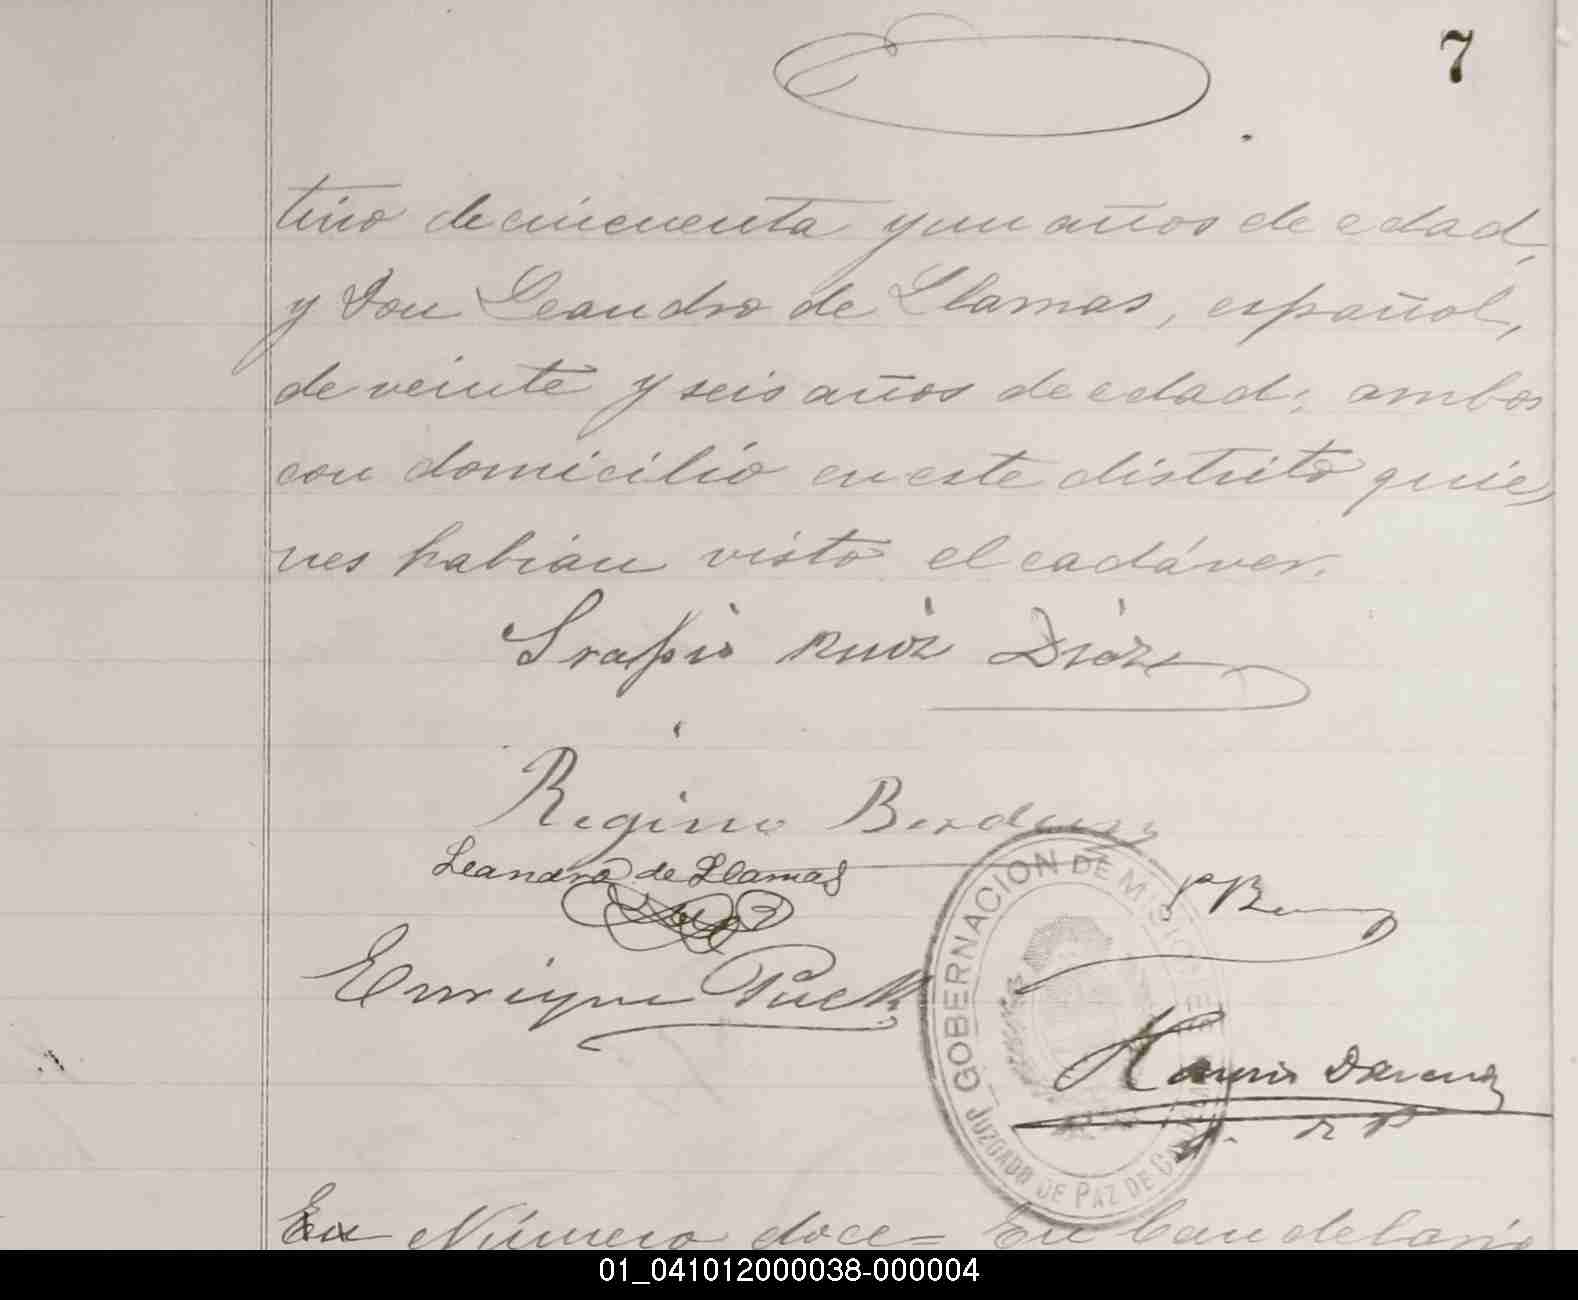 7
tino de cincuenta y un años de edad,
y Don Leandro de Llamas, español,
de veinte y seis años de edad; ambos
con domicilio en este distrito quie,
nes habian visto el cadáver.
Srapio Ruiz Diaz
Regino
Leandro de Llamas
Enrique Puck
GOBERNACION DE MISIONES
JUZGADO DE PAZ DE
En Número doce = En Candelaria
01_041012000038-000004